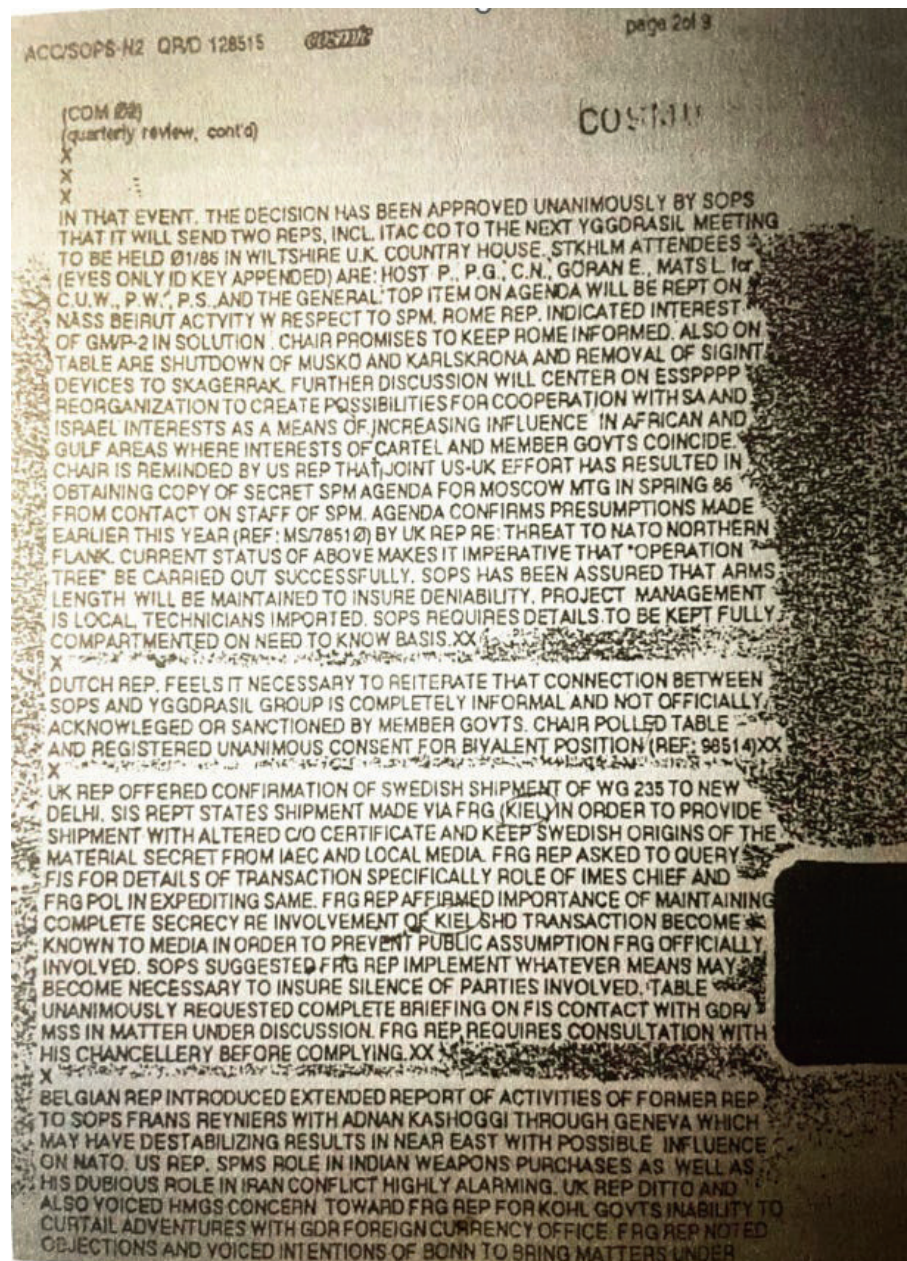 ACC/SOPS-N2 QR/D 128515 COSMIC page 2of 9
(COM Ø2)
(quarterly review, cont'd)
X
X
X
IN THAT EVENT. THE DECISION HAS BEEN APPROVED UNANIMOUSLY BY SOPS
THAT IT WILL SEND TWO REPS, INCL. ITAC CO TO THE NEXT YGGDRASIL MEETING
TO BE HELD Ø1/86 IN WILTSHIRE U.K. COUNTRY HOUSE. STKHLM ATTENDEES
(EYES ONLY ID KEY APPENDED) ARE: HOST P., P.G., C.N., GÖRAN E., MATS L. for
C.U.W., P.W., P.S. AND THE GENERAL. TOP ITEM ON AGENDA WILL BE REPT ON
NASS BEIRUT ACTVITY W RESPECT TO SPM. ROME REP. INDICATED INTEREST
OF GM/P-2 IN SOLUTION. CHAIR PROMISES TO KEEP ROME INFORMED. ALSO ON
TABLE ARE SHUTDOWN OF MUSKÖ AND KARLSKRONA AND REMOVAL OF SIGINT
DEVICES TO SKAGERRAK. FURTHER DISCUSSION WILL CENTER ON ESSPPPP
REORGANIZATION TO CREATE POSSIBILITIES FOR COOPERATION WITH SA AND
ISRAEL INTERESTS AS A MEANS OF INCREASING INFLUENCE IN AFRICAN AND
GULF AREAS WHERE INTERESTS OF CARTEL AND MEMBER GOVTS COINCIDE.
CHAIR IS REMINDED BY US REP THAT JOINT US-UK EFFORT HAS RESULTED IN
OBTAINING COPY OF SECRET SPM AGENDA FOR MOSCOW MTG IN SPRING 86
FROM CONTACT ON STAFF OF SPM. AGENDA CONFIRMS PRESUMPTIONS MADE
EARLIER THIS YEAR (REF: MS/7851Ø) BY UK REP RE: THREAT TO NATO NORTHERN
FLANK. CURRENT STATUS OF ABOVE MAKES IT IMPERATIVE THAT "OPERATION
TREE" BE CARRIED OUT SUCCESSFULLY. SOPS HAS BEEN ASSURED THAT ARMS
LENGTH WILL BE MAINTAINED TO INSURE DENIABILITY. PROJECT MANAGEMENT
IS LOCAL, TECHNICIANS IMPORTED. SOPS REQUIRES DETAILS TO BE KEPT FULLY
COMPARTMENTED ON NEED TO KNOW BASIS.XX
X
DUTCH REP. FEELS IT NECESSARY TO REITERATE THAT CONNECTION BETWEEN
SOPS AND YGGDRASIL GROUP IS COMPLETELY INFORMAL AND NOT OFFICIALLY
ACKNOWLEGED OR SANCTIONED BY MEMBER GOVTS. CHAIR POLLED TABLE
AND REGISTERED UNANIMOUS CONSENT FOR BIVALENT POSITION (REF: 98514)XX
X
UK REP OFFERED CONFIRMATION OF SWEDISH SHIPMENT OF WG 235 TO NEW
DELHI. SIS REPT STATES SHIPMENT MADE VIA FRG (KIEL) IN ORDER TO PROVIDE
SHIPMENT WITH ALTERED C/O CERTIFICATE AND KEEP SWEDISH ORIGINS OF THE
MATERIAL SECRET FROM IAEC AND LOCAL MEDIA. FRG REP ASKED TO QUERY
FIS FOR DETAILS OF TRANSACTION SPECIFICALLY ROLE OF IMES CHIEF AND
FRG POL IN EXPEDITING SAME. FRG REP AFFIRMED IMPORTANCE OF MAINTAINING
COMPLETE SECRECY RE INVOLVEMENT OF KIEL SHD TRANSACTION BECOME
KNOWN TO MEDIA IN ORDER TO PREVENT PUBLIC ASSUMPTION FRG OFFICIALLY
INVOLVED. SOPS SUGGESTED FRG REP IMPLEMENT WHATEVER MEANS MAY
BECOME NECESSARY TO INSURE SILENCE OF PARTIES INVOLVED. TABLE
UNANIMOUSLY REQUESTED COMPLETE BRIEFING ON FIS CONTACT WITH GDR/
MSS IN MATTER UNDER DISCUSSION. FRG REP REQUIRES CONSULTATION WITH
HIS CHANCELLERY BEFORE COMPLYING.XX
X
BELGIAN REP INTRODUCED EXTENDED REPORT OF ACTIVITIES OF FORMER REP
TO SOPS FRANS REYNIERS WITH ADNAN KASHOGGI THROUGH GENEVA WHICH
MAY HAVE DESTABILIZING RESULTS IN NEAR EAST WITH POSSIBLE INFLUENCE
ON NATO. US REP. SPMS ROLE IN INDIAN WEAPONS PURCHASES AS WELL AS
HIS DUBIOUS ROLE IN IRAN CONFLICT HIGHLY ALARMING. UK REP DITTO AND
ALSO VOICED HMGS CONCERN TOWARD FRG REP FOR KOHL GOVTS INABILITY TO
CURTAIL ADVENTURES WITH GDR FOREIGN CURRENCY OFFICE. FRG REP NOTED
OBJECTIONS AND VOICED INTENTIONS OF BONN TO BRING MATTERS UNDER